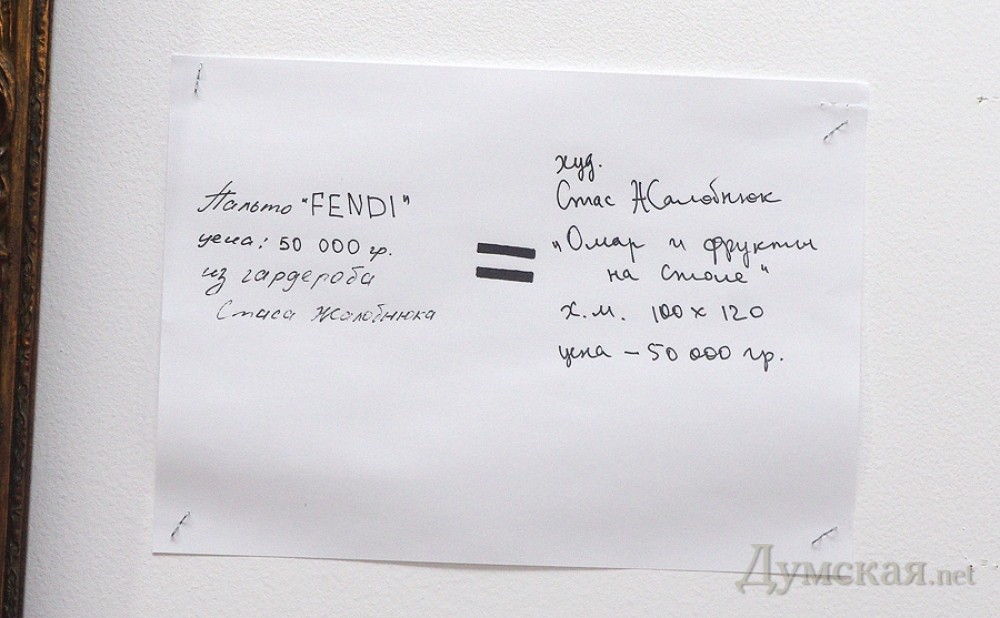 Пальто "FENDI"
цена: 50 000 гр.
из гардероба
Стаса Жалобнюка
=
худ.
Стас Жалобнюк
„Омар и фрукты
на столе"
х.м. 100 х 120
цена – 50 000 гр.
Думская.net